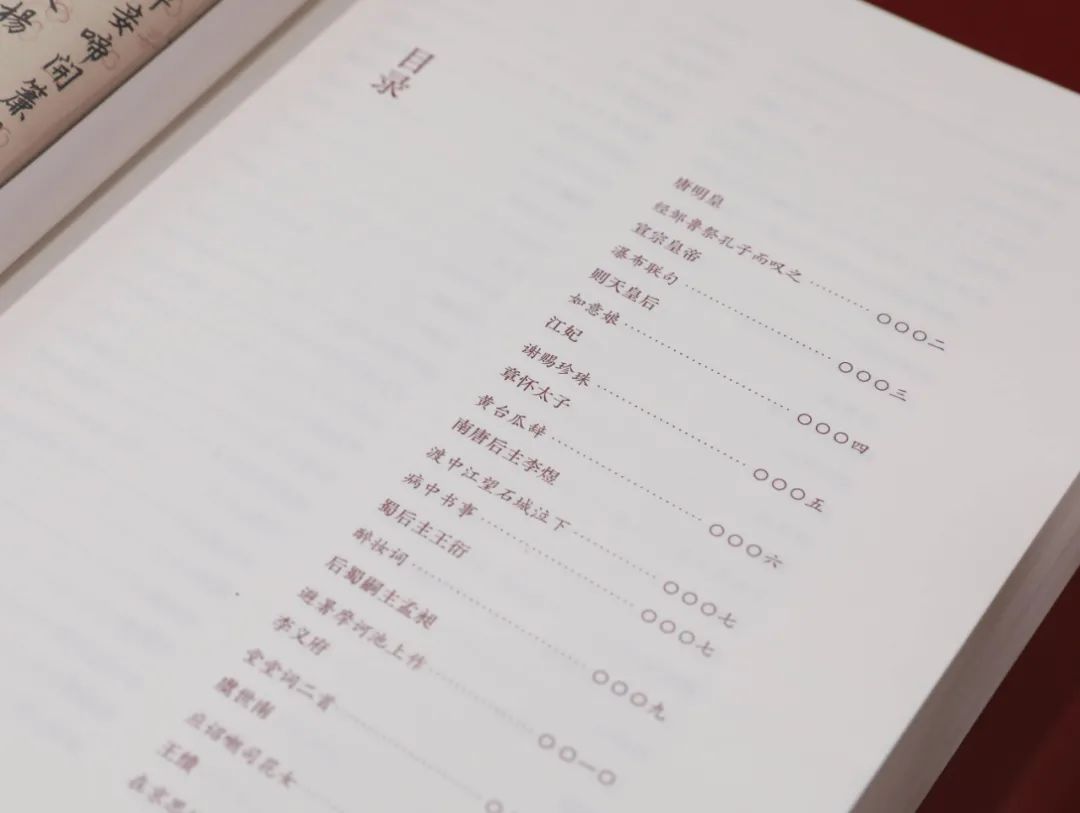 妾啼開簾
楊
目录
唐明皇
经邹鲁祭孔子而叹之 〇〇〇二
宣宗皇帝
瀑布联句 〇〇〇三
则天皇后
如意娘 〇〇〇四
江妃
谢赐珍珠 〇〇〇五
章怀太子
黄台瓜辞 〇〇〇六
南唐后主李煜
渡中江望石城泣下 〇〇〇七
病中书事 〇〇〇七
蜀后主王衍
醉妆词 〇〇〇九
后蜀嗣主孟昶
避暑摩诃池上作 〇〇一〇
李义府
堂堂词二首
虞世南
应诏嘲司花女
王绩
在京思